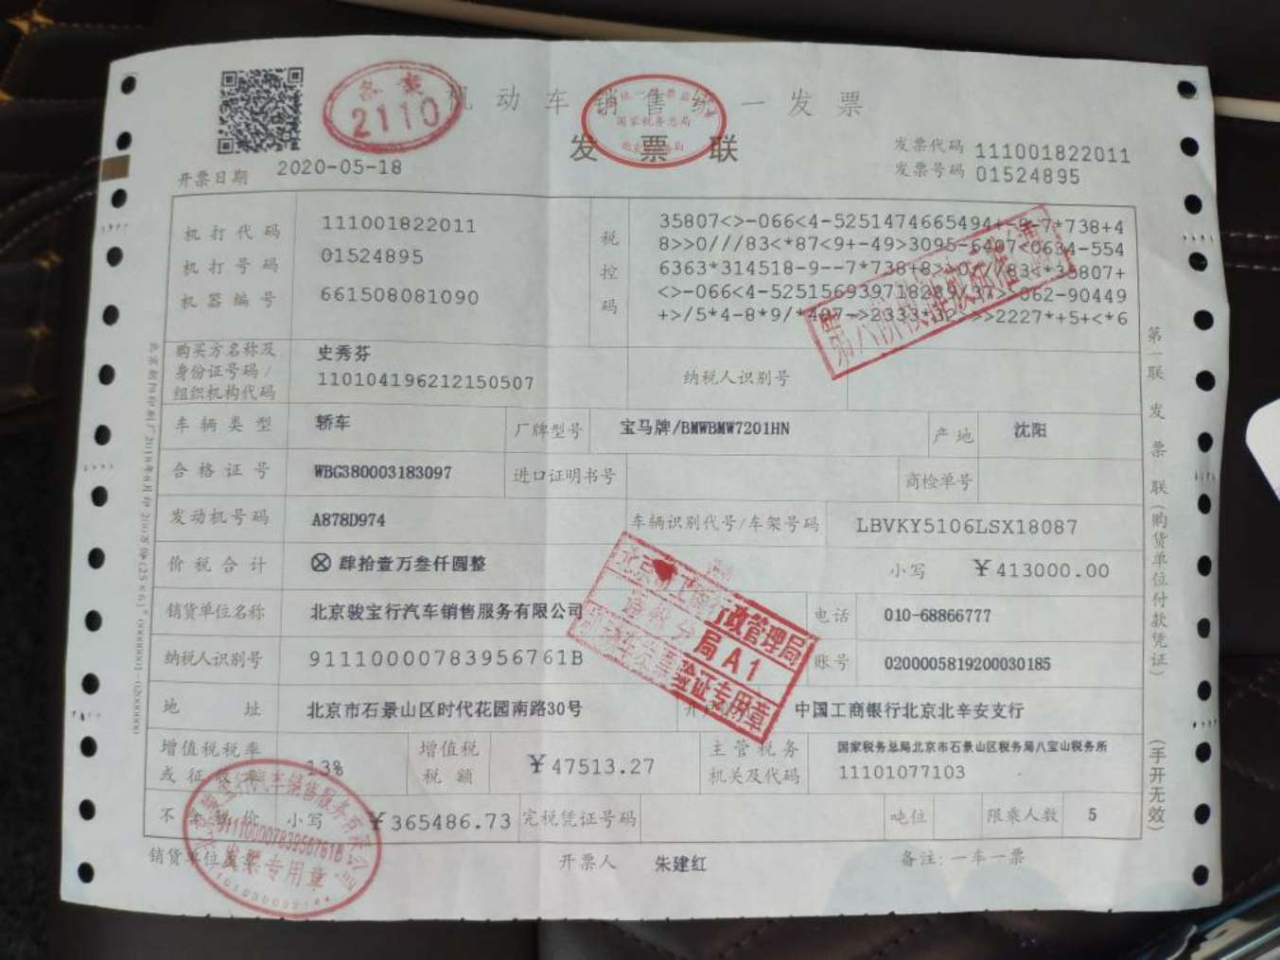 机动车销售统一发票
发票联
2110
国家税务总局
开票日期 2020-05-18
发票代码 111001822011
发票号码 01524895
机打代码 111001822011
机打号码 01524895
机器编号 661508081090
税控码
35807<>-066<4-5251474665494+-8-7*738+4
8>>0///83<*87<9+-49>3095-6407<0634-554
6363*314518-9--7*738+8>>0///83<*35807+
购买方名称及身份证号码/组织机构代码
史秀芬
110104196212150507
纳税人识别号
车辆类型 轿车 厂牌型号 宝马牌/BMWBMW7201HN 产地 沈阳
合格证号 WBG380003183097 进口证明书号 商检单号
发动机号码 A878D974 车辆识别代号/车架号码 LBVKY5106LSX18087
价税合计 ⊗肆拾壹万叁仟圆整 小写 ¥413000.00
销货单位名称 北京骏宝行汽车销售服务有限公司 电话 010-68866777
纳税人识别号 91110000783956761B 账号 0200005819200030185
地址 北京市石景山区时代花园南路30号 中国工商银行北京北辛安支行
增值税税率或征 13% 增值税税额 ¥47513.27 主管税务机关及代码 国家税务总局北京市石景山区税务局八宝山税务所 11101077103
不 价 小写 ¥365486.73 完税凭证号码 吨位 限乘人数 5
销货单位 开票人 朱建红 备注:一车一票
第一联 发票联(购货单位付款凭证)
(手开无效)
行政管理局
局A1
验证专用章
91110000783956761B
发票专用章